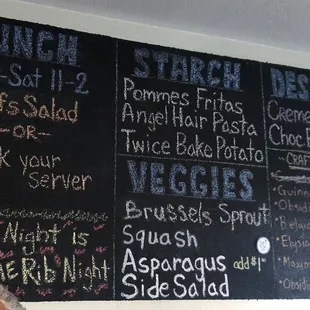 UNCH
-Sat 11-2
fs Salad
-OR-
k your
server
Night is
me Rib Night
STARCH
Pommes Fritas
Angel Hair Pasta
Twice Bake Potato
VEGGIES
Brussels Sprout
Squash
Asparagus add $1
Side Salad
DES
Creme
Choc
CRAF
Guinn
Obsid
Belgi
Elysia
Maxim
Obsid